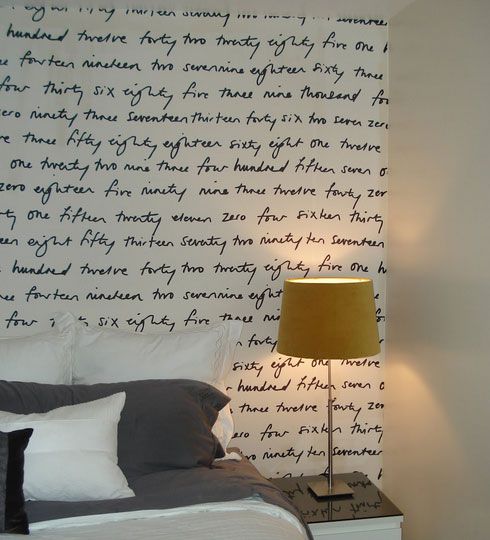 thirteen seventy two twenty seventeen
hundred twelve forty two twenty eighty five one h
nine fourteen nineteen two seven nine eighteen sixty three
four thirty six eighty five three nine thousand fo
zero ninety three seventeen thirteen forty six two seven zero
e three fifty eighty eighteen sixty eight one twelve
one twenty two nine three four hundred fifteen seven
zero eighteen five ninety nine three twelve forty zer
ty one fifteen twenty eleven zero four sixteen thirty
een eight fifty thirteen seventy two ninety ten seventeen
hundred twelve forty two twenty eighty five one h
e fourteen nineteen two seven nine eight
four six eighty five three nine
forty
sixty eight one twelve
hundred fifteen seven o
three twelve forty zer
zero four sixteen thirty
two ninety ten seventeen